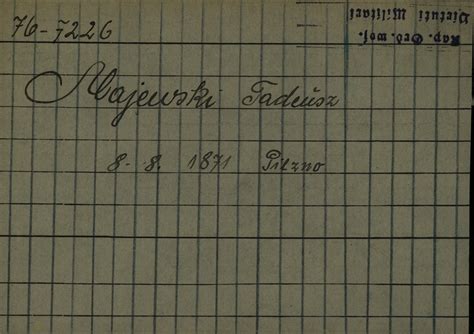 76-7226
Kap. Ord. woj.
Virtuti Militari
Majewski Tadeusz
8. 8. 1871 Pilzno